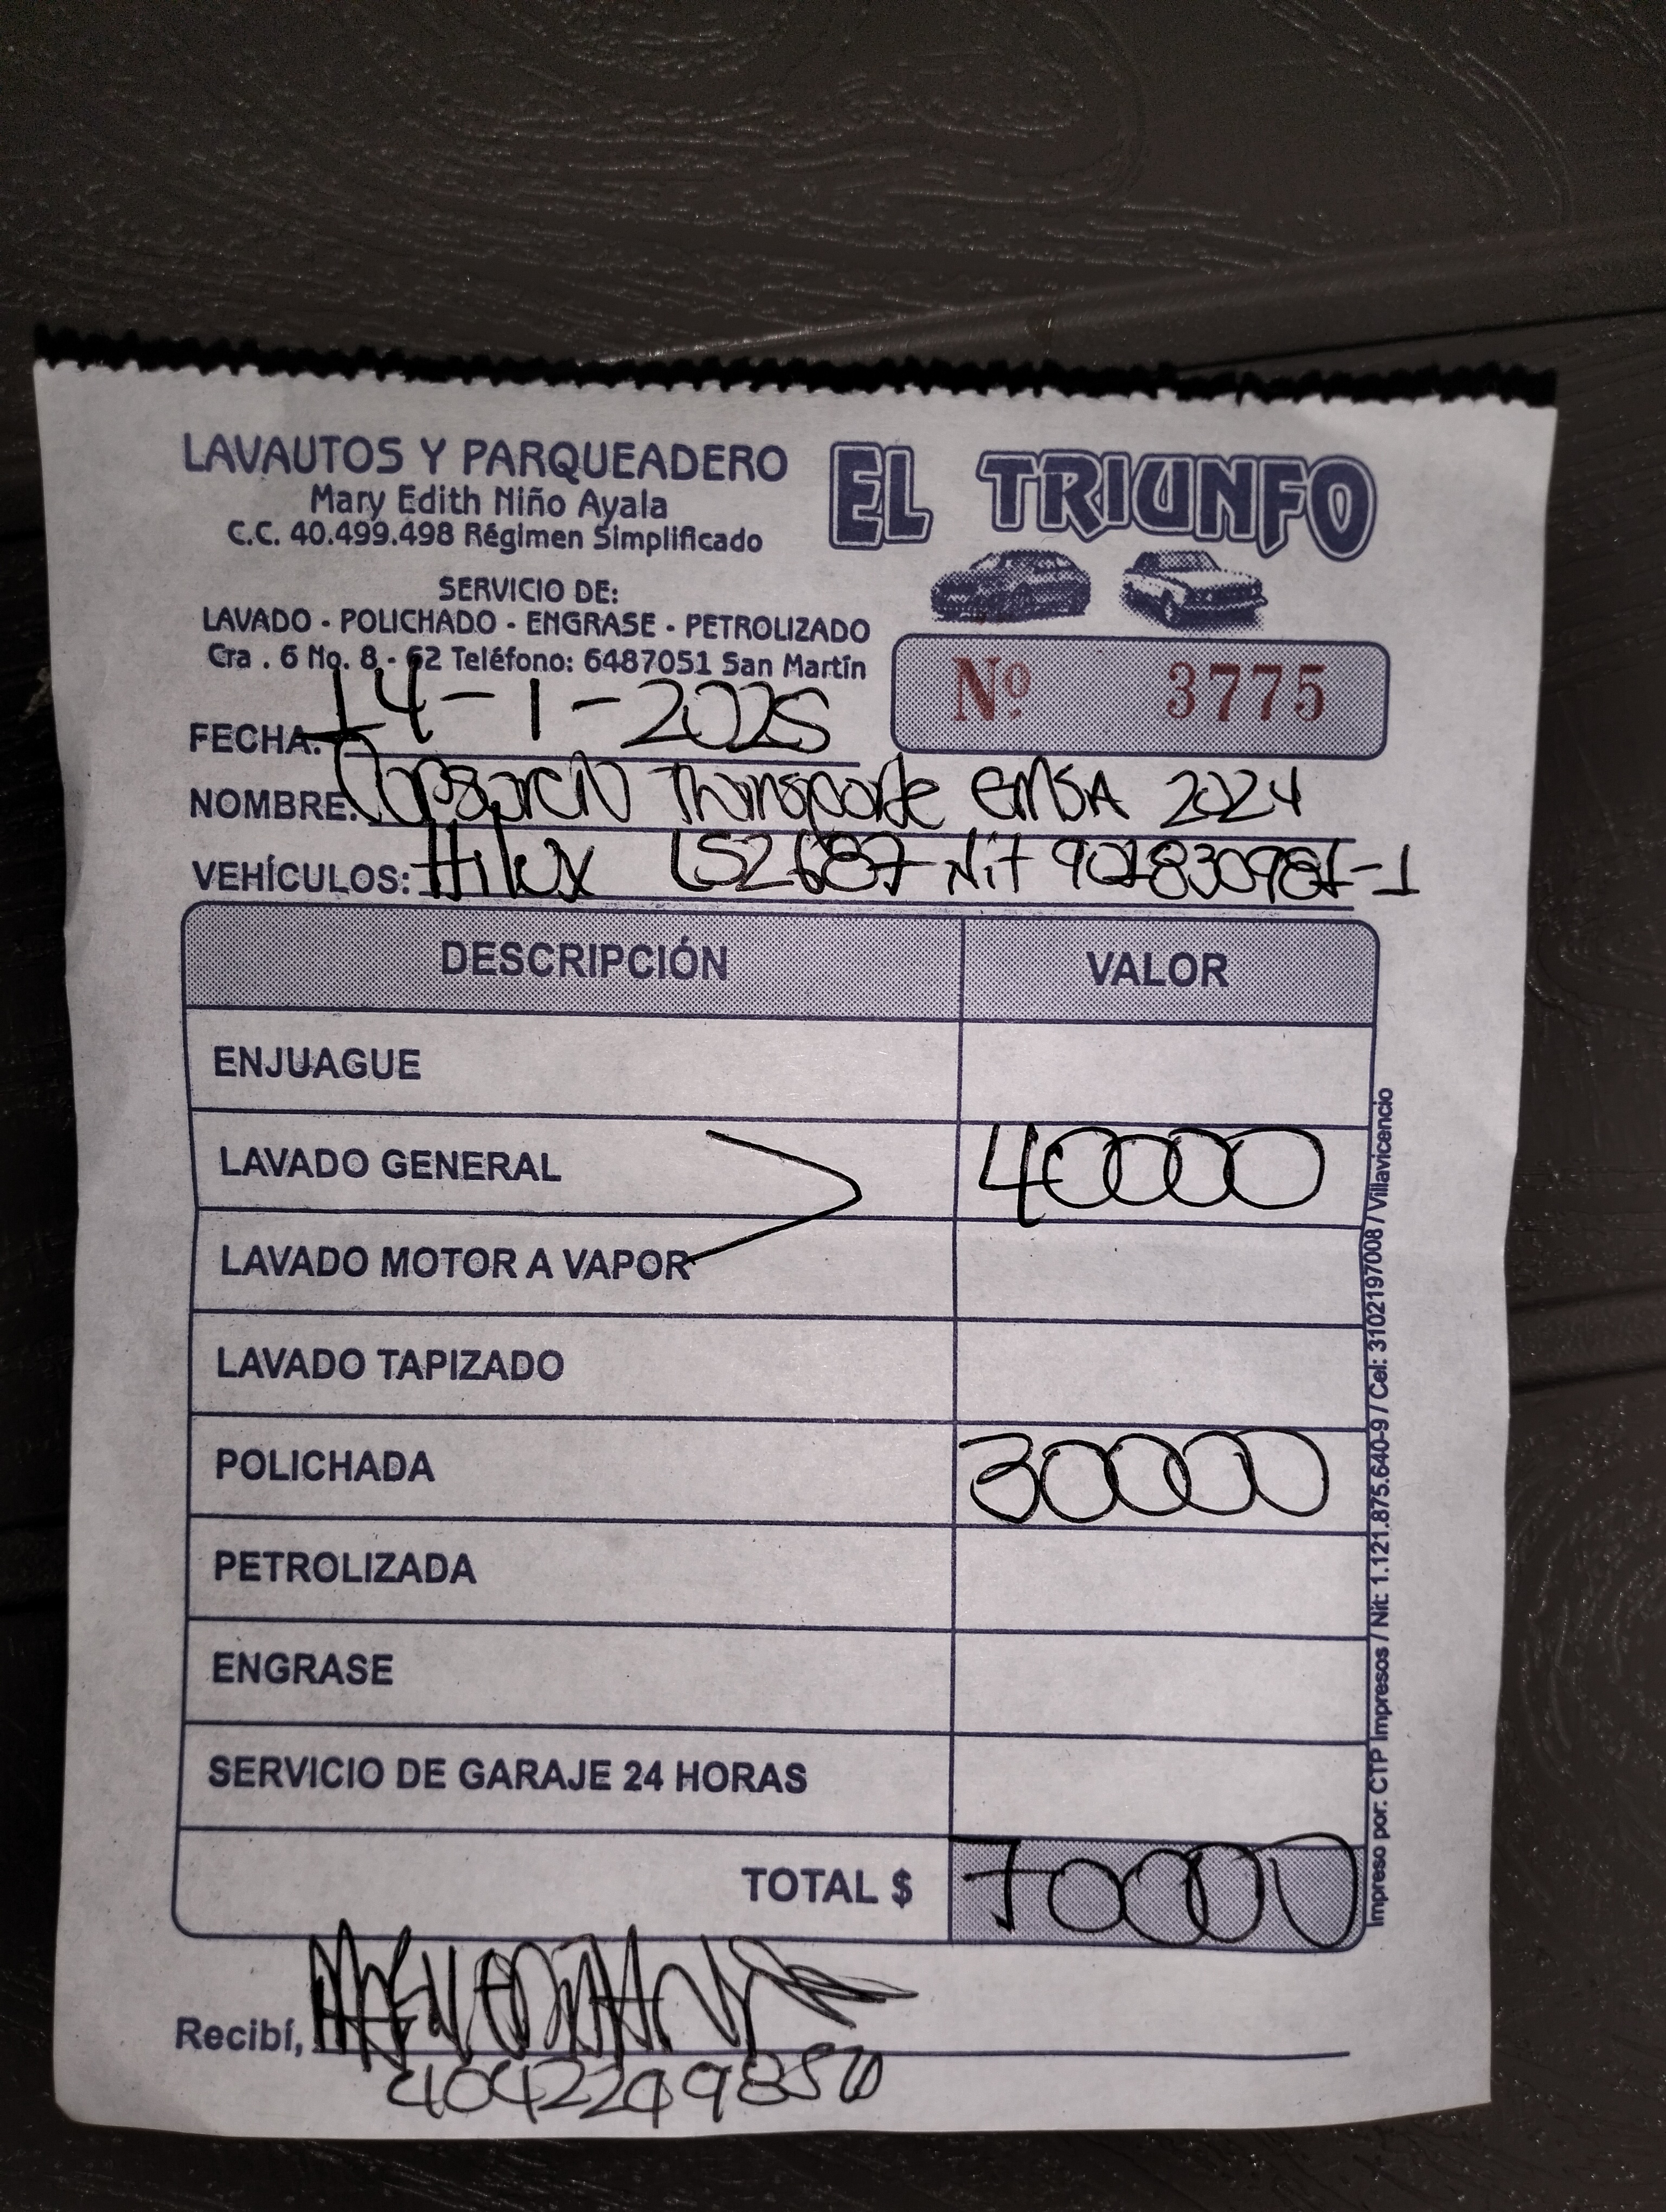 LAVAUTOS Y PARQUEADERO
EL TRIUNFO
Mary Edith Niño Ayala
C.C. 40.499.498 Régimen Simplificado
SERVICIO DE:
LAVADO - POLICHADO - ENGRASE - PETROLIZADO
Cra . 6 No. 8 - 62 Teléfono: 6487051 San Martín
Nº 3775
FECHA: 14-1-2025
NOMBRE: Transporte EMSA 2024
VEHÍCULOS: Hilux LS2687 Nit 901830981-1
DESCRIPCIÓN VALOR
ENJUAGUE
LAVADO GENERAL 40000
LAVADO MOTOR A VAPOR
LAVADO TAPIZADO
POLICHADA 30000
PETROLIZADA
ENGRASE
SERVICIO DE GARAJE 24 HORAS
TOTAL $ 70000
Recibí,
Impreso por: CTP Impresos / Nit: 1.121.875.640-9 / Cel: 3102197008 / Villavicencio